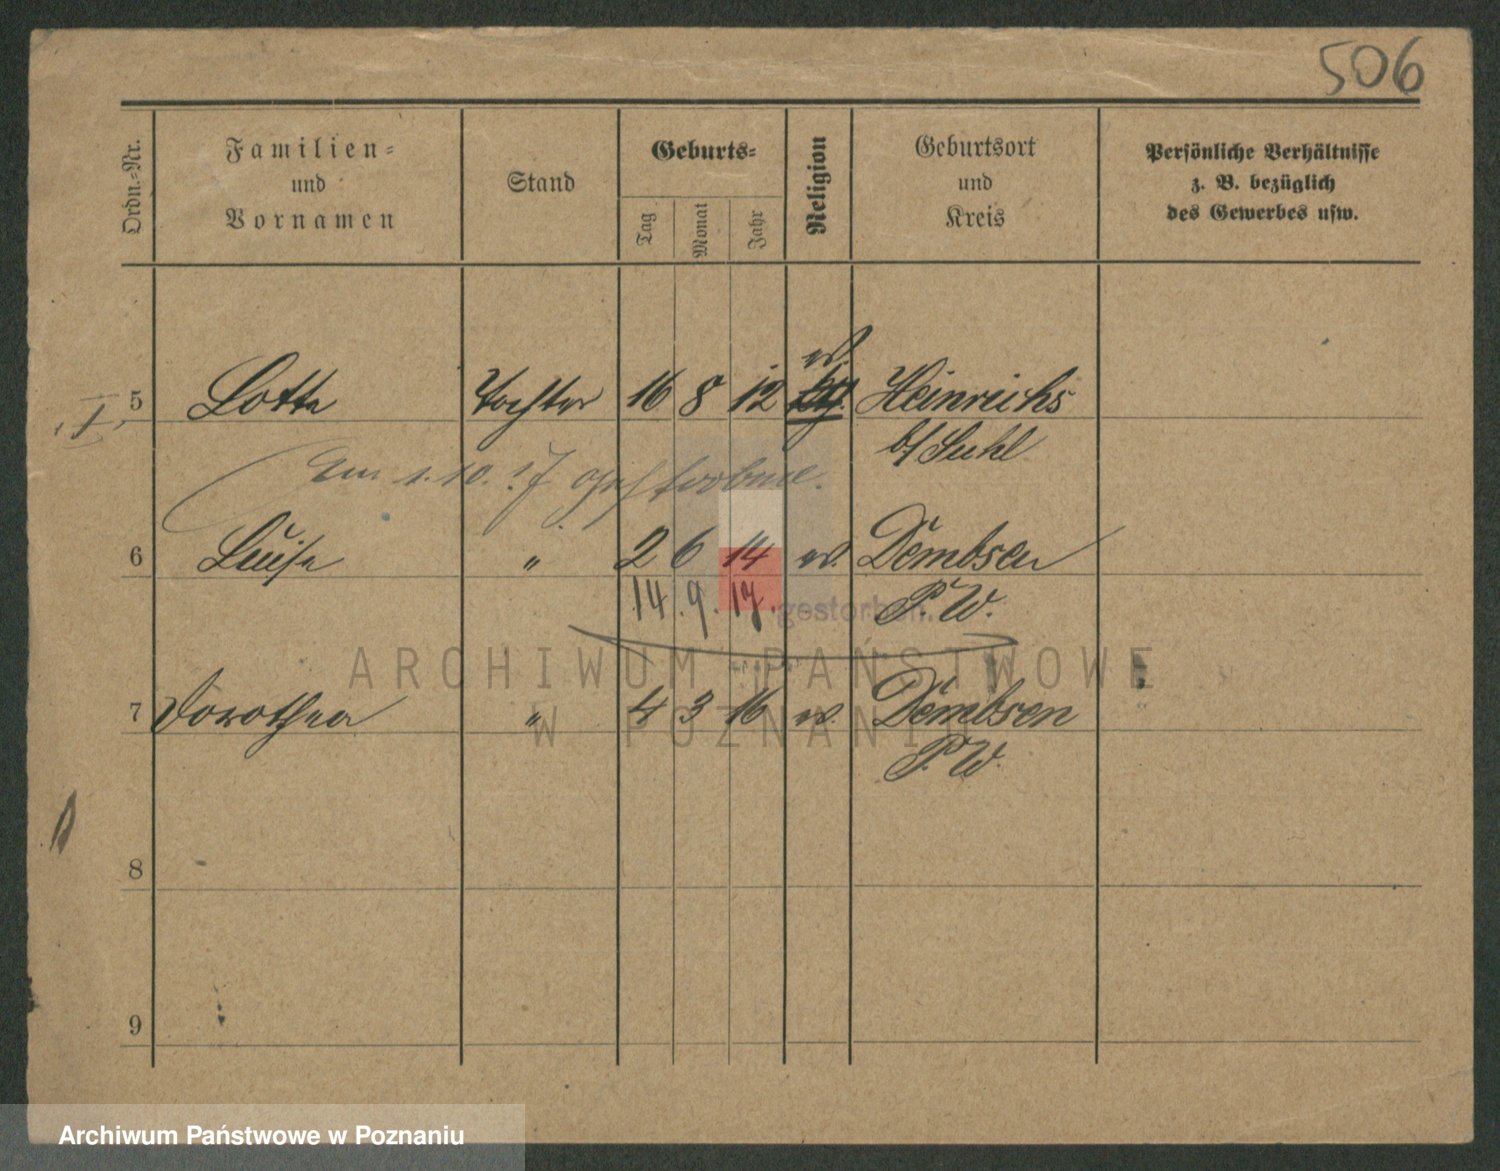 506
Ordn.-Nr.
Familien-
und
Vornamen
Stand
Geburts-
Tag
Monat
Jahr
Religion
Geburtsort
und
Kreis
Persönliche Verhältnisse
z. B. bezüglich
des Gewerbes usw.
ev.
I. 5 Lotte Tochter 16 8 12 Heinrichs
b/ Suhl
Am 1. 10. 17 gestorben.
6 Luise " 2 6 14 ev. Dembsen
14. 9. 17. gestorben. P. W.
ARCHIWUM PAŃSTWOWE
7 Dorothea " 4 3 16 ev. Dembsen
W POZNANIU
P. W.
8
9
Archiwum Państwowe w Poznaniu